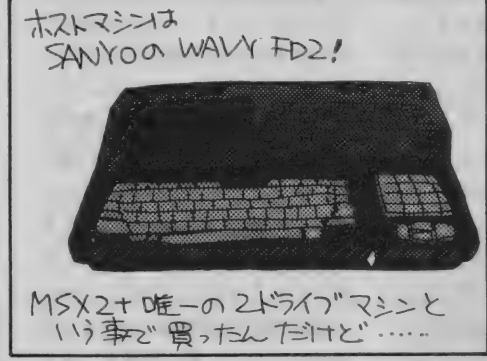 ホストマシンは
SANYOの WAVY FD2!
MSX2+ 唯一の 2ドライブ マシンと
いう事で 買ったんだけど……